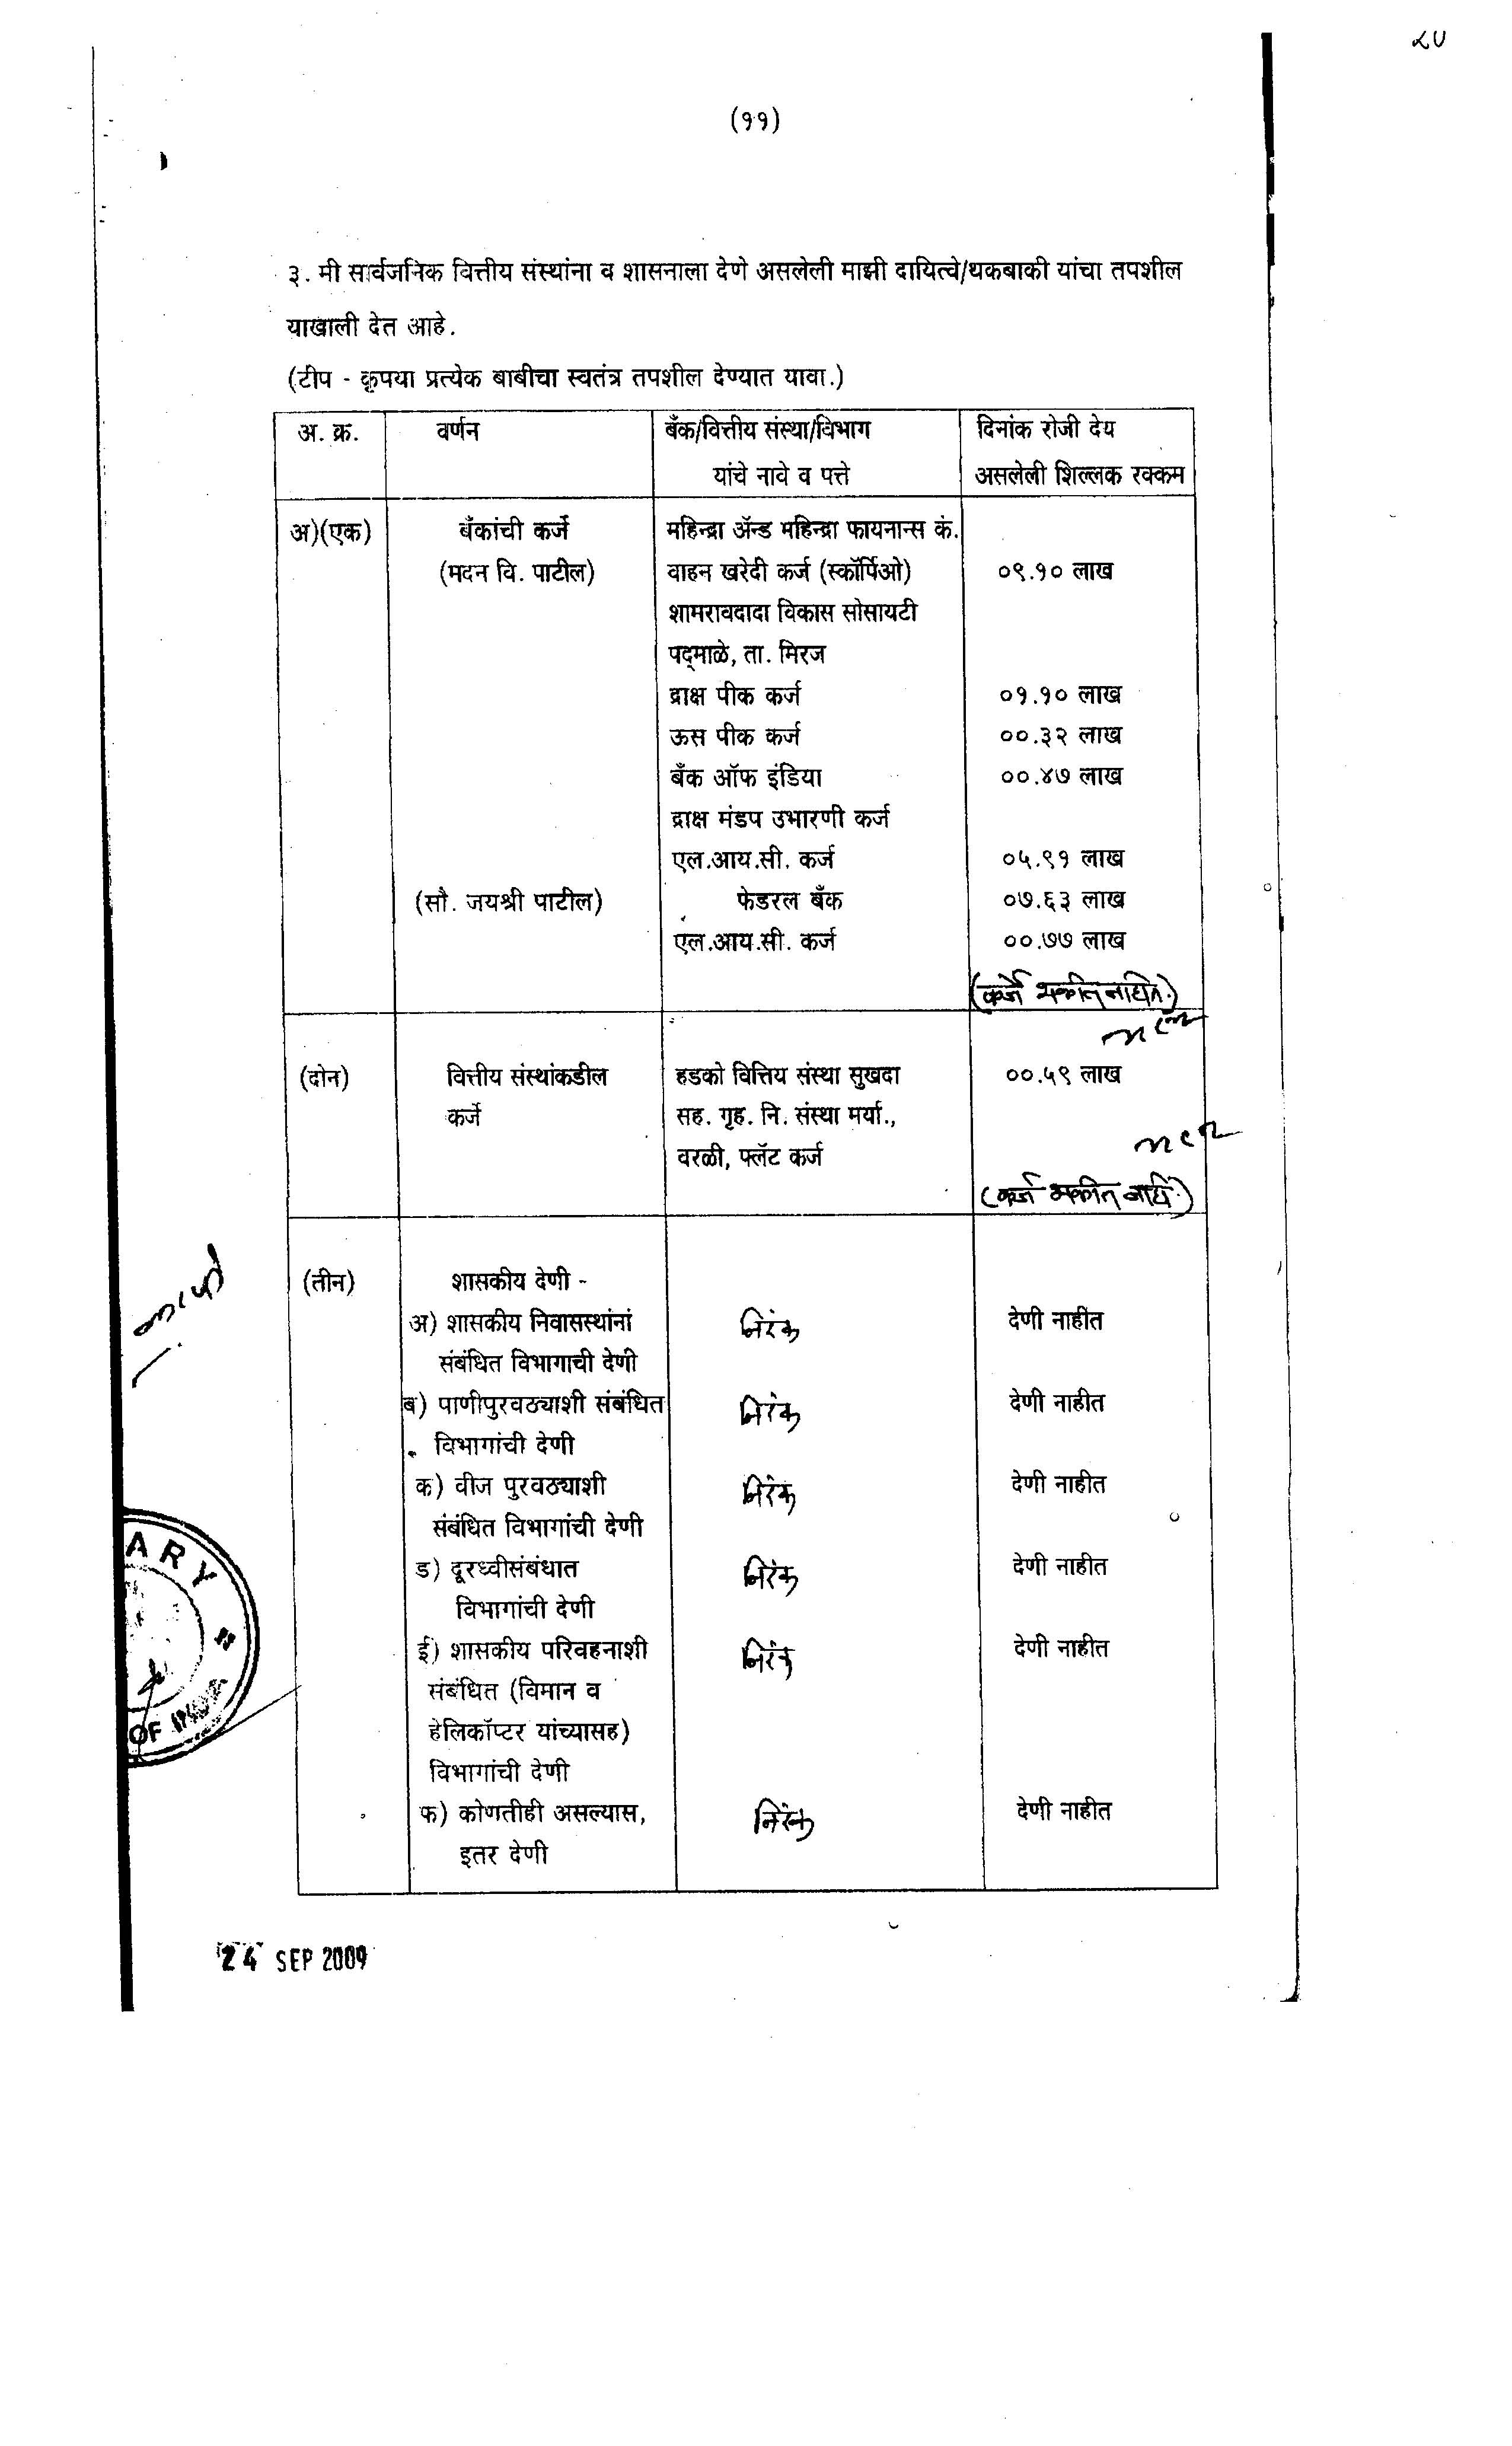 (११)
३. मी सार्वजनिक वित्तीय संस्थांना व शासनाला देणे असलेली माझी दायित्वे/थकबाकी यांचा तपशील
याखाली देत आहे.
(टीप - कृपया प्रत्येक बाबीचा स्वतंत्र तपशील देण्यात यावा.)
अ. क्र. वर्णन बँक/वित्तीय संस्था/विभाग दिनांक रोजी देय
यांचे नावे व पत्ते असलेली शिल्लक रक्कम
अ)(एक) बँकांची कर्जे महिन्द्रा ॲन्ड महिन्द्रा फायनान्स कं.
(मदन वि. पाटील) वाहन खरेदी कर्ज (स्कॉर्पिओ) ०९.१० लाख
शामरावदादा विकास सोसायटी
पद्माळे, ता. मिरज
द्राक्ष पीक कर्ज ०१.१० लाख
ऊस पीक कर्ज ००.३२ लाख
बँक ऑफ इंडिया ००.४७ लाख
द्राक्ष मंडप उभारणी कर्ज
एल.आय.सी. कर्ज ०५.९१ लाख
(सौ. जयश्री पाटील) फेडरल बँक ०७.६३ लाख
एल.आय.सी. कर्ज ००.७७ लाख
(कर्जे थकीत नाहीत.)
(दोन) वित्तीय संस्थांकडील हडको वित्तिय संस्था सुखदा ००.५९ लाख
कर्जे सह. गृह. नि. संस्था मर्या.,
वरळी, फ्लॅट कर्ज
(कर्ज थकीत नाही.)
(तीन) शासकीय देणी -
अ) शासकीय निवासस्थांनां निरंक देणी नाहीत
संबंधित विभागाची देणी
ब) पाणीपुरवठ्याशी संबंधित निरंक देणी नाहीत
विभागांची देणी
क) वीज पुरवठ्याशी निरंक देणी नाहीत
संबंधित विभागांची देणी
ड) दूरध्वीसंबंधात निरंक देणी नाहीत
विभागांची देणी
ई) शासकीय परिवहनाशी निरंक देणी नाहीत
संबंधित (विमान व
हेलिकॉप्टर यांच्यासह)
विभागांची देणी
फ) कोणतीही असल्यास, निरंक देणी नाहीत
इतर देणी
ARY
OF
24 SEP 2009